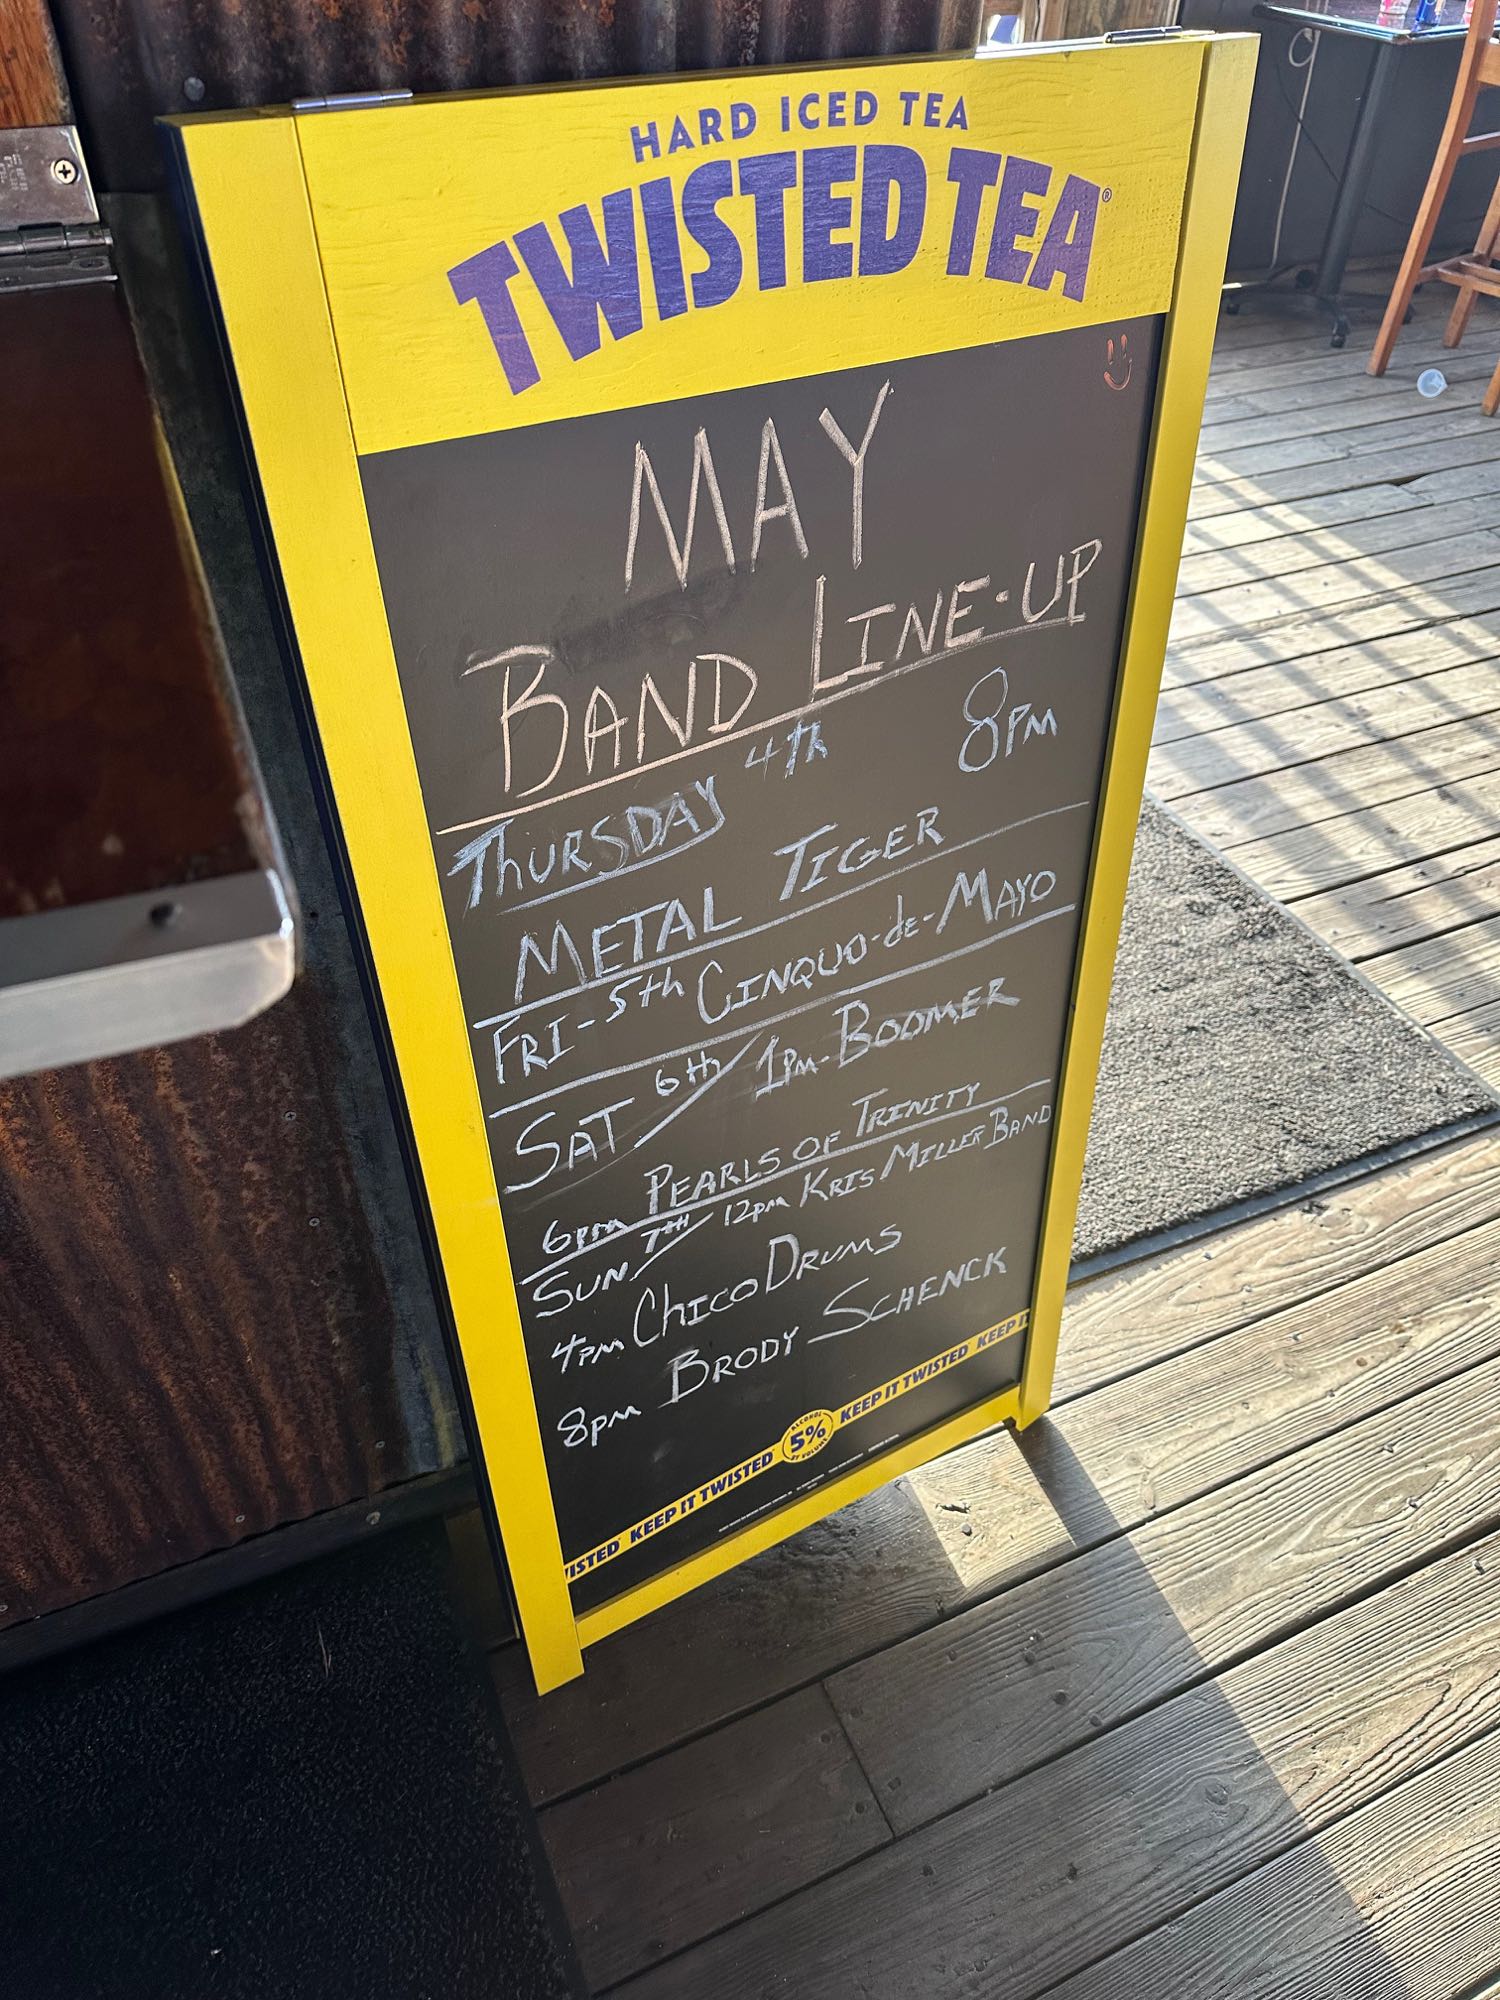 HARD ICED TEA
TWISTED TEA®
MAY
BAND LINE-UP
THURSDAY 4th 8PM
METAL TIGER
FRI-5th CINQUO-de-MAYO
SAT 6th/ 1PM-BOOMER
6pm PEARLS OF TRINITY
SUN 7TH/ 12pm KRIS MILLER BAND
4PM CHICO DRUMS
8pm BRODY SCHENCK
ISTED KEEP IT TWISTED ALCOHOL 5% BY VOLUME KEEP IT TWISTED KEEP IT